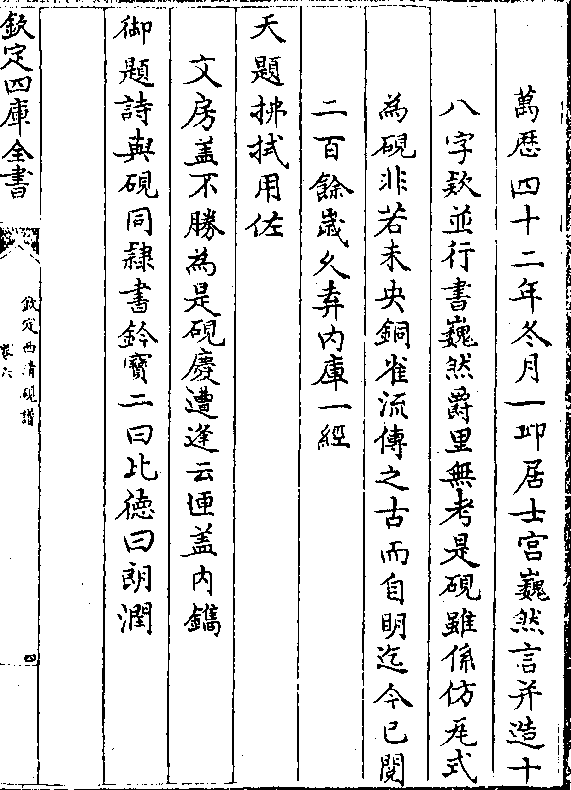 萬歴四十二年冬月一卬居士宫巍然言并造十
八字欵並行書巍然爵里無考是硯雖係仿瓦式
為硯非若未央銅雀流傳之古而自明迄今已閲
二百餘歲久弆内庫一經
天題拂拭用佐
文房盖不勝為是硯慶遭逢云匣盖内鐫
御題詩與硯同隷書鈐寶二曰比徳曰朗潤
欽定四庫全書
欽定西清硯譜
卷六
四